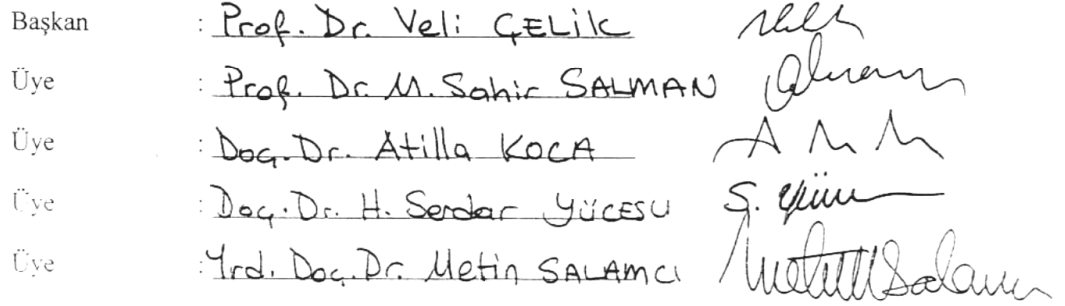 Başkan : Prof. Dr. Veli ÇELİK
Üye : Prof. Dr. M. Sahir SALMAN
Üye : Doç. Dr. Atilla KOCA
Üye : Doç. Dr. H. Serdar YÜCESU
Üye : Yrd. Doç. Dr. Metin SALAMCI